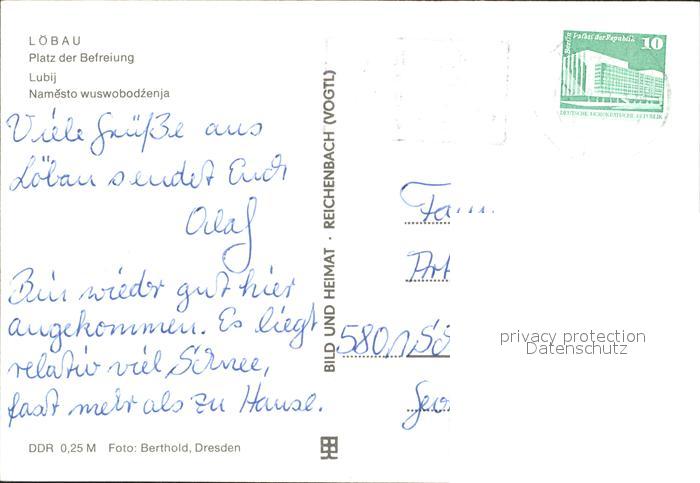 LÖBAU
Platz der Befreiung
Lubij
Naměsto wuswobodźenja
Viele Grüße aus
Löbau sendet Euch
Olaf
Bin wieder gut hier
angekommen. Es liegt
relativ viel Schnee,
fast mehr als zu Hause.
DDR 0,25 M Foto: Berthold, Dresden
BILD UND HEIMAT · REICHENBACH (VOGTL)
Berlin Palast der Republik
10
DEUTSCHE DEMOKRATISCHE REPUBLIK
Fam
5801
privacy protection
Datenschutz